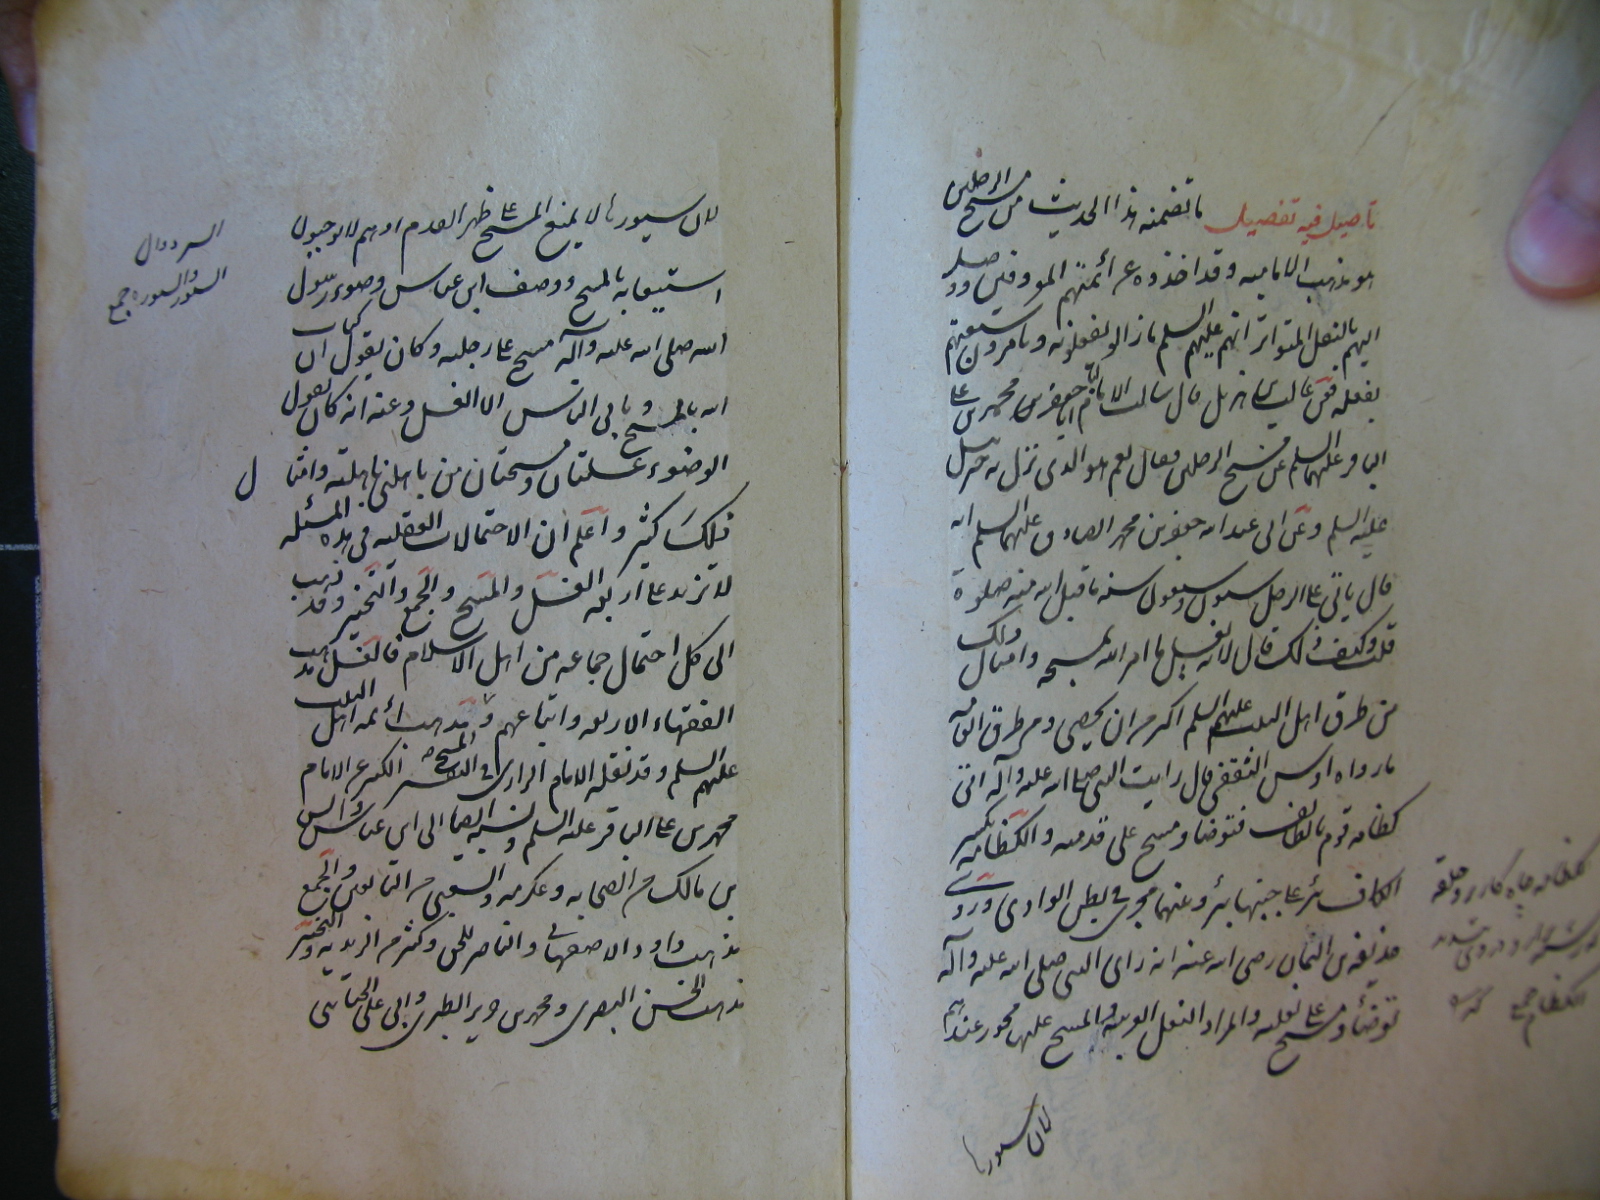 تأصيل فيه تفصيل ما تضمنه هذا الحديث من مسح الرجلين
هو مذهب الامامية وقد اخذوه عن أئمتهم الموقوفين ووصل
اليهم بالنقل المتواتر انهم عليهم السلم ما زالوا يفعلونه ويأمرون شيعتهم
بفعله فعن غالب بن هزيل قال سالت الامام ابا جعفر محمد بن على
الباقر عليهما السلم عن مسح الرجلين فقال نعم هو الذى نزل به جبرئيل
عليه السلم وعن ابى عبد الله جعفر بن محمد الصادق عليهما السلم انه
قال ياتى على الرجل ستون وسبعون سنه ما قبل الله منه صلوة
قلت وكيف ذلك قال لانه يغسل ما امر الله بمسحه وامثال ذلك
من طرق اهل البيت عليهم السلم اكثر من ان يحصى ومن طرق العامه
ما رواه اوس الثقفى قال رايت النبى صلى الله عليه وآله اتى
كظامة قوم بالطائف فتوضا ومسح على قدميه والكظامه بكسر
الكاف بئر على جنبها بئر وبينهما مجرى فى بطن الوادى وروى
حذيفه بن اليمان رضى الله عنه انه راى النبى صلى الله عليه وآله
توضأ ومسح على نعليه والمراد النعل العربيه والمسح عليها مجوز عندهم
لان سيورها
كظامه چاه كه در پهلوى
الكظام جمع
لان سيورها لا يمنع المسح على ظهر القدم اذ هم لا يوجبون
استيعابه بالمسح ووصف ابن عباس وضوء رسول
الله صلى الله عليه وآله مسح على رجليه وكان يقول ان كتاب
الله بالمسح ويابى الناس الا الغسل وعنه انه كان يقول
الوضوء غسلتان ومسحتان من باهلنى باهلته وامثال
ذلك كثير واعلم ان الاحتمالات العقليه فى هذه المسئله
لا تزيد على اربعه الغسل والمسح والجمع والتخيير وقد ذهب
الى كل احتمال جماعه من اهل الاسلام فالغسل مذهب
الفقهاء الاربعه واتباعهم والمسح مذهب ائمه اهل البيت
عليهم السلم وقد نقله الامام الرازى فى التفسير الكبير عن الامام
محمد بن على الباقر عليه السلم ونسبه ايضا الى ابن عباس وانس
بن مالك من الصحابه وعكرمه والشعبى من التابعين والجمع
مذهب داود الاصفهانى والناصر للحق وكثير من الزيديه والتخيير
مذهب الحسن البصرى ومحمد بن جرير الطبرى وابى على الجبائى
السير دوال
والسيور والسيوره جمع